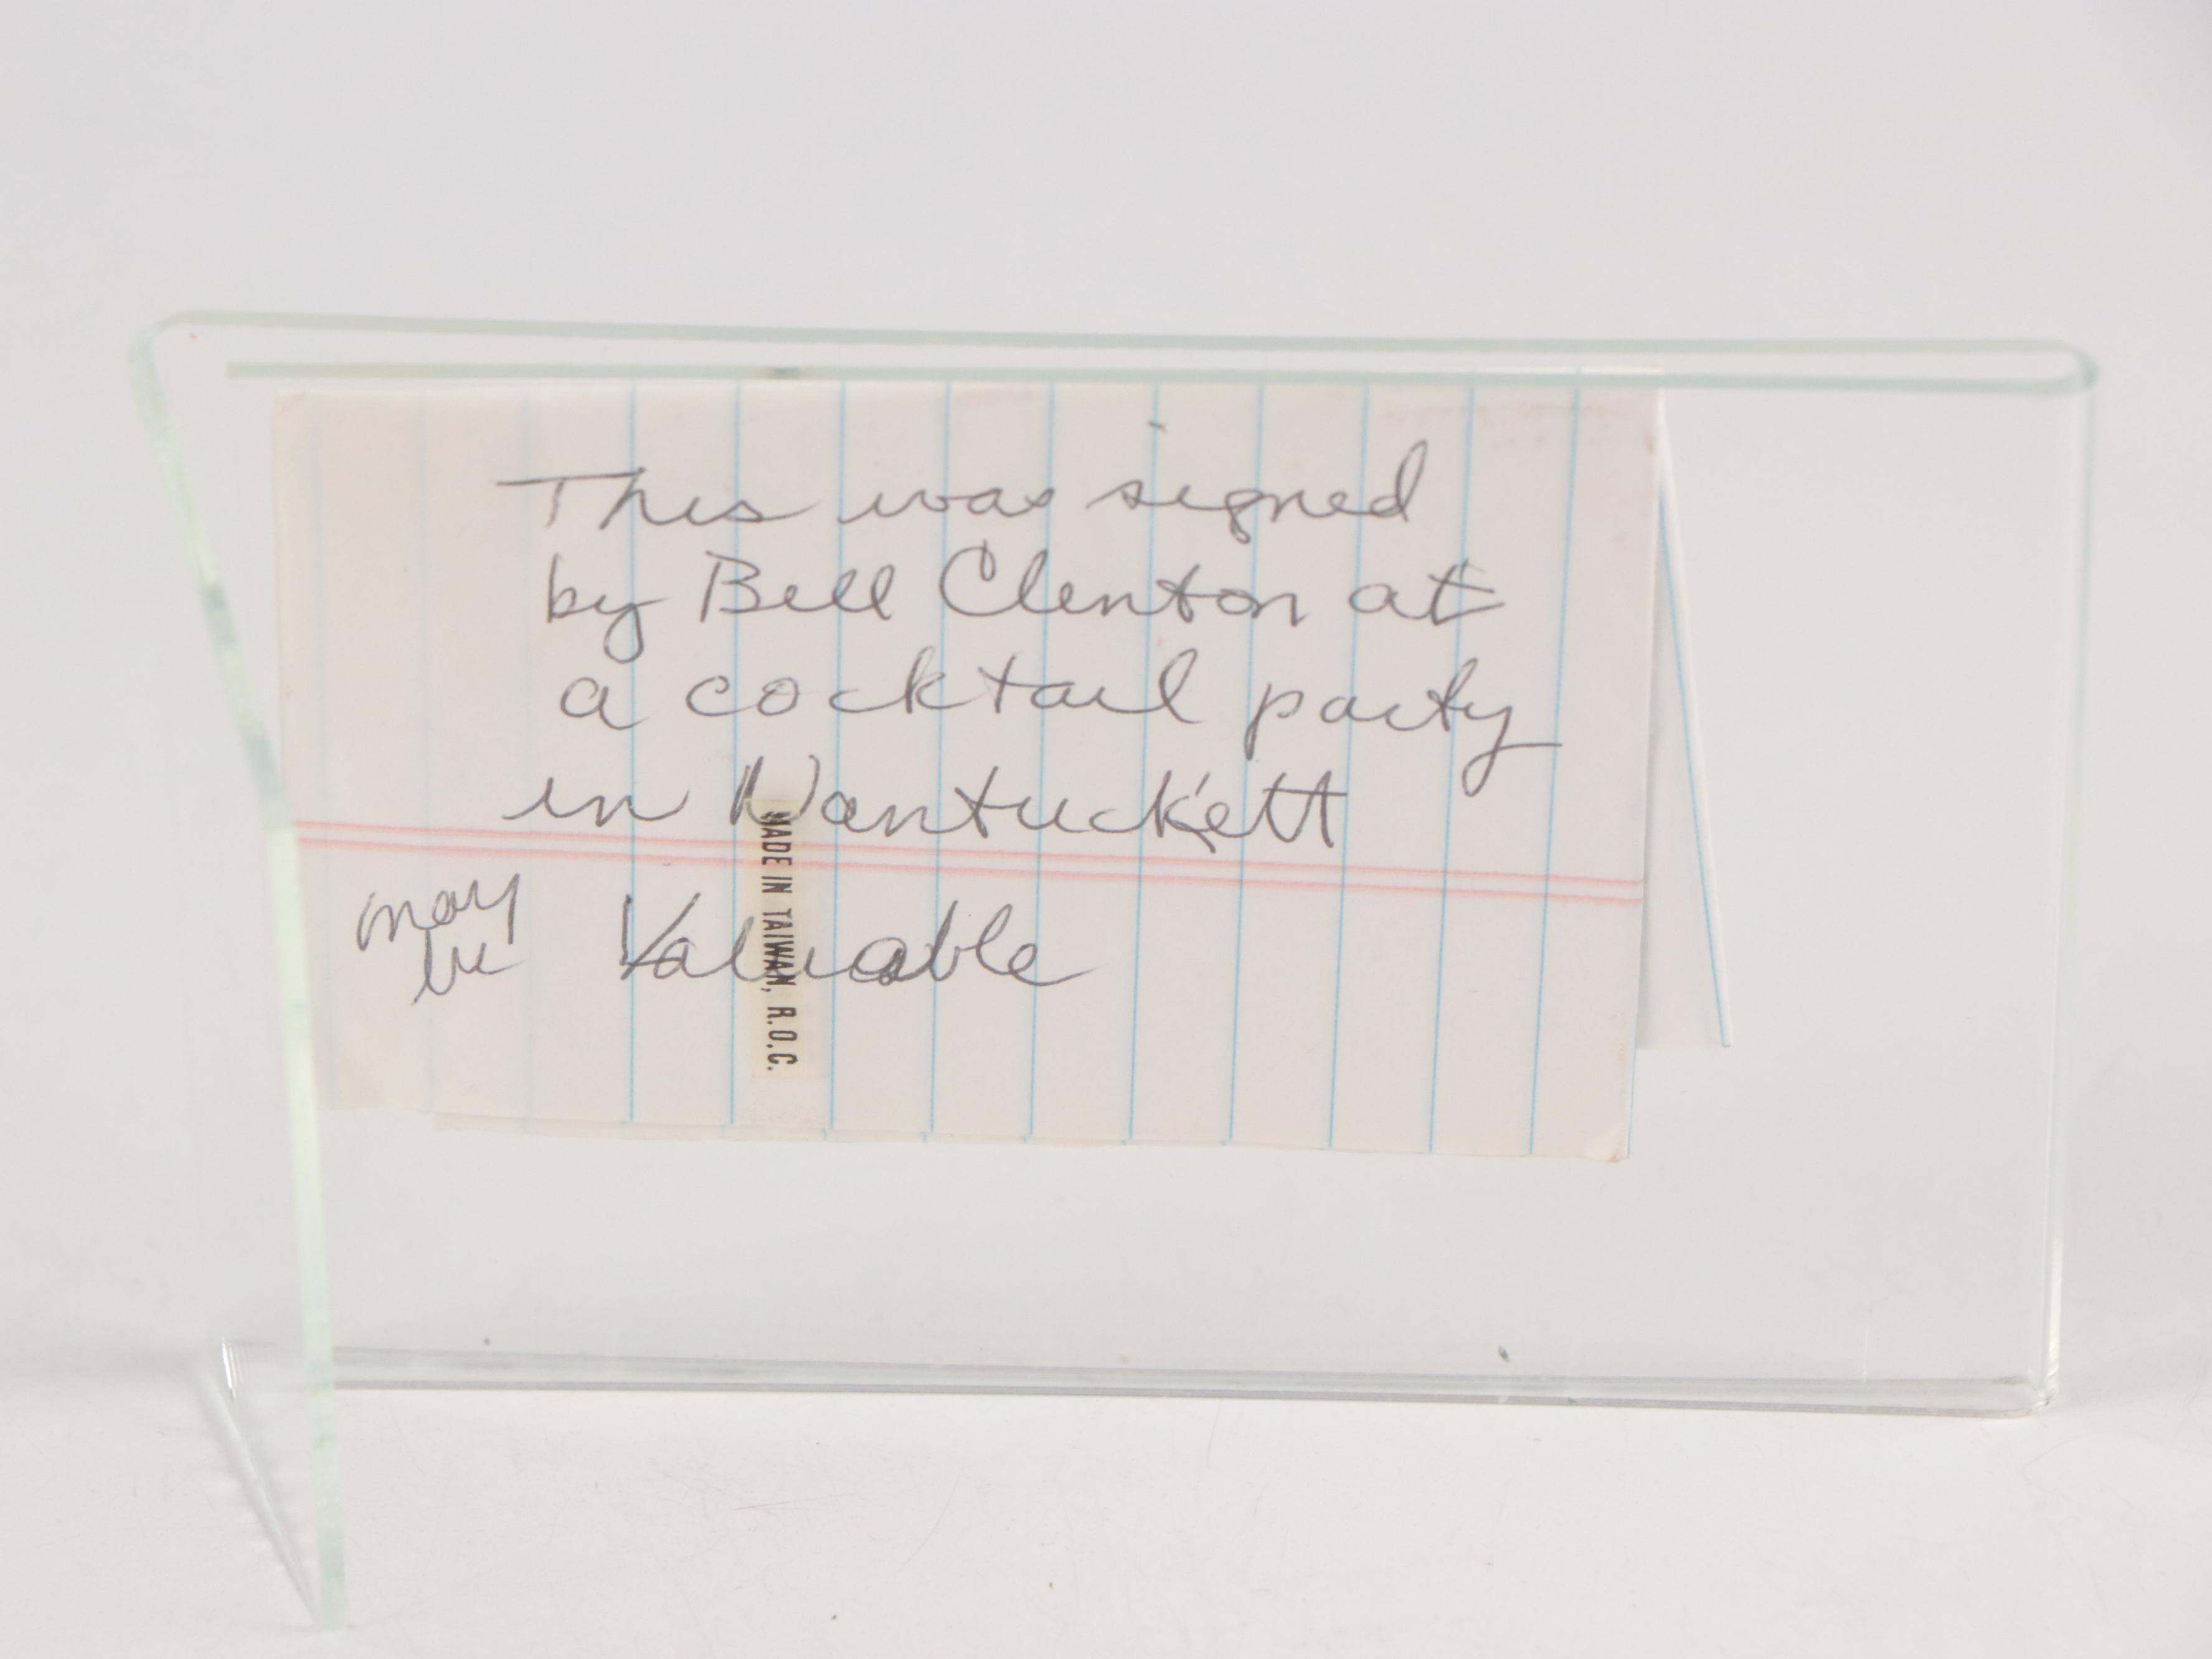 This was signed
by Bill Clinton at
a cocktail party
in Nantuckett
may be Valuable
MADE IN TAIWAN, R.O.C.